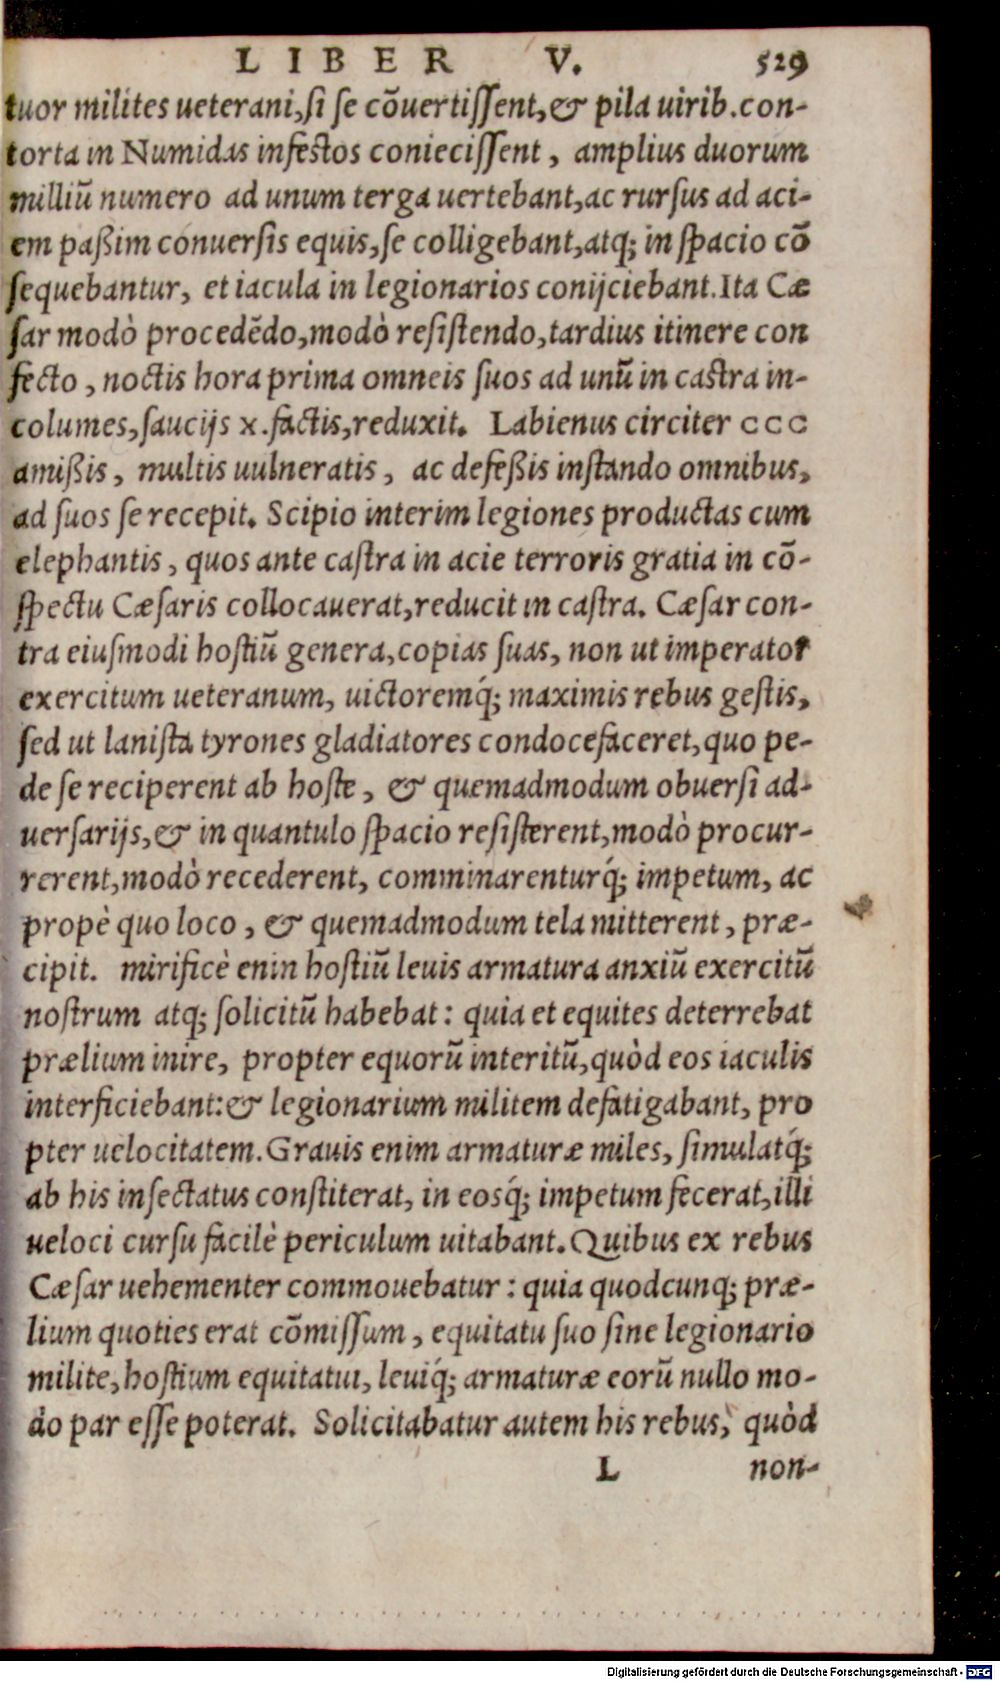 LIBER V. 529
tuor milites ueterani,ſi ſe cõuertiſſent,& pila uirib.con-
torta in Numidas infeſtos conieciſſent, amplius duorum
milliũ numero ad unum terga uertebant,ac rurſus ad aci-
em paßim conuerſis equis,ſe colligebant,atq; in ſpacio cõ
ſequebantur, et iacula in legionarios conijciebant.Ita Cæ
ſar modò procedẽdo,modò reſiſtendo,tardius itinere con
fecto, noctis hora prima omneis ſuos ad unũ in caſtra in-
columes,ſaucijs x.factis,reduxit. Labienus circiter ccc
amißis, multis uulneratis, ac defeßis inſtando omnibus,
ad ſuos ſe recepit. Scipio interim legiones productas cum
elephantis, quos ante caſtra in acie terroris gratia in cõ-
ſpectu Cæſaris collocauerat,reducit in caſtra. Cæſar con-
tra eiuſmodi hoſtiũ genera,copias ſuas, non ut imperator
exercitum ueteranum, uictoremq́; maximis rebus geſtis,
ſed ut laniſta tyrones gladiatores condocefaceret,quo pe-
de ſe reciperent ab hoſte, & quemadmodum obuerſi ad-
uerſarijs,& in quantulo ſpacio reſiſterent,modò procur-
rerent,modò recederent, comminarenturq́; impetum, ac
propè quo loco, & quemadmodum tela mitterent, præ-
cipit. mirificè enin hoſtiũ leuis armatura anxiũ exercitũ
noſtrum atq; ſolicitũ habebat: quia et equites deterrebat
prælium inire, propter equorũ interitũ,quòd eos iaculis
interficiebant:& legionarium militem defatigabant, pro
pter uelocitatem.Grauis enim armaturæ miles, ſimulatq́;
ab his inſectatus conſtiterat, in eosq́; impetum fecerat,illi
ueloci curſu facilè periculum uitabant.Quibus ex rebus
Cæſar uehementer commouebatur: quia quodcunq; præ-
lium quoties erat cõmiſſum, equitatu ſuo ſine legionario
milite,hoſtium equitatui, leuiq́; armaturæ eorũ nullo mo-
do par eſſe poterat. Solicitabatur autem his rebus, quòd
L non-
Digitalisierung gefördert durch die Deutsche Forschungsgemeinschaft - DFG